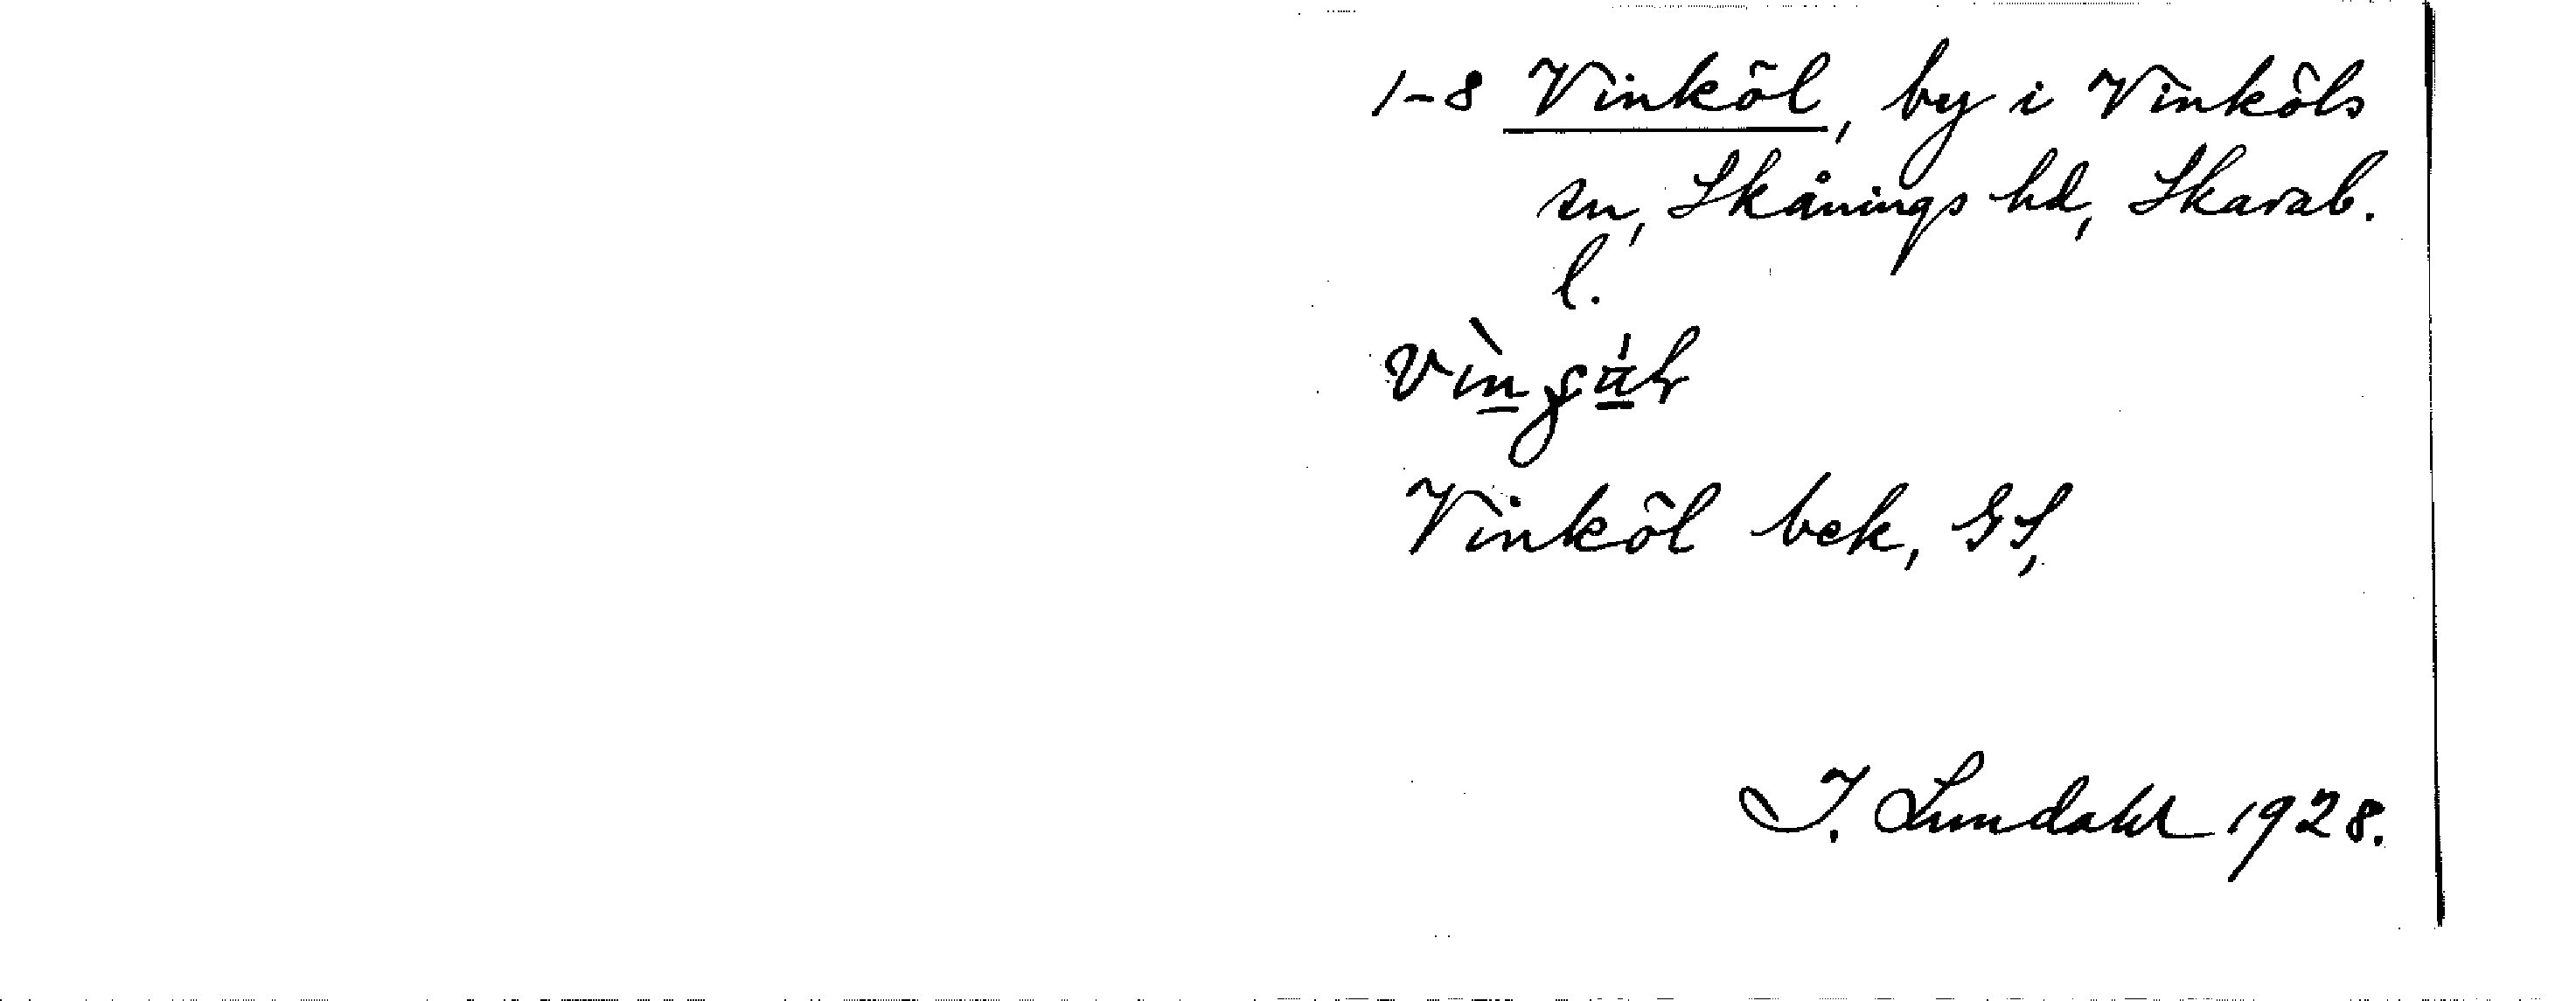 1-8 Vinköl, by i Vinköls
sn, Skånings hd, Skarab.
l.
Vinköl bek, GS,
I. Lundahl 1928.